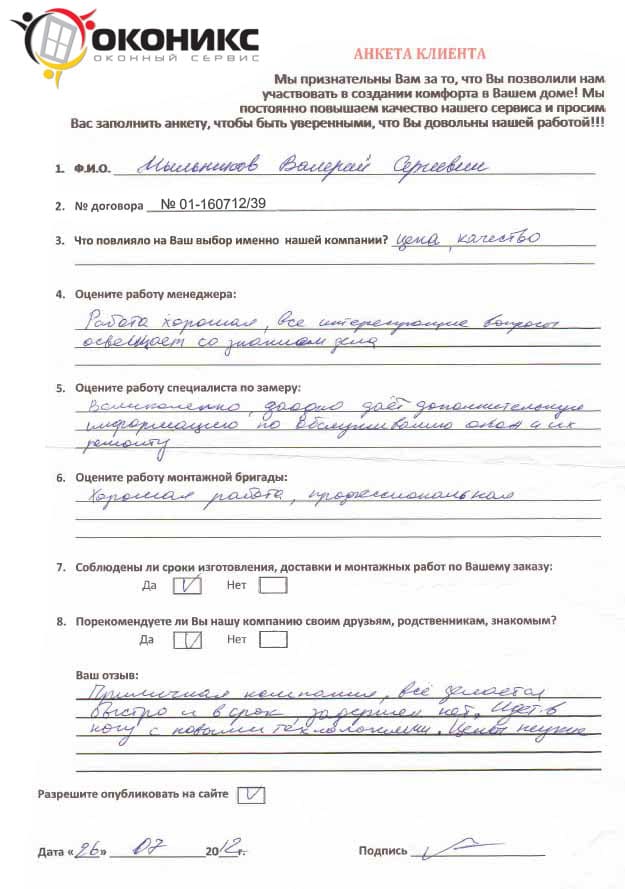 ОКОНИКС
ОКОННЫЙ СЕРВИС
АНКЕТА КЛИЕНТА
Мы признательны Вам за то, что Вы позволили нам
участвовать в создании комфорта в Вашем доме! Мы
постоянно повышаем качество нашего сервиса и просим
Вас заполнить анкету, чтобы быть уверенными, что Вы довольны нашей работой!!!
1. Ф.И.О. Мыльников Валерий Сергеевич
2. № договора № 01-160712/39
3. Что повлияло на Ваш выбор именно нашей компании? цена, качество
4. Оцените работу менеджера:
Работа хорошая, все интересующие вопросы
освещает со знанием дела
5. Оцените работу специалиста по замеру:
Великолепно, заодно даёт дополнительную
информацию по обслуживанию окон и их
ремонту
6. Оцените работу монтажной бригады:
Хорошая работа, профессиональная
7. Соблюдены ли сроки изготовления, доставки и монтажных работ по Вашему заказу:
Да V Нет
8. Порекомендуете ли Вы нашу компанию своим друзьям, родственникам, знакомым?
Да V Нет
Ваш отзыв:
Приличная компания, всё делается
быстро и в срок, задержек нет. Идет в
ногу с новыми технологиями. Цены
Разрешите опубликовать на сайте V
Дата «26» 07 2012г. Подпись